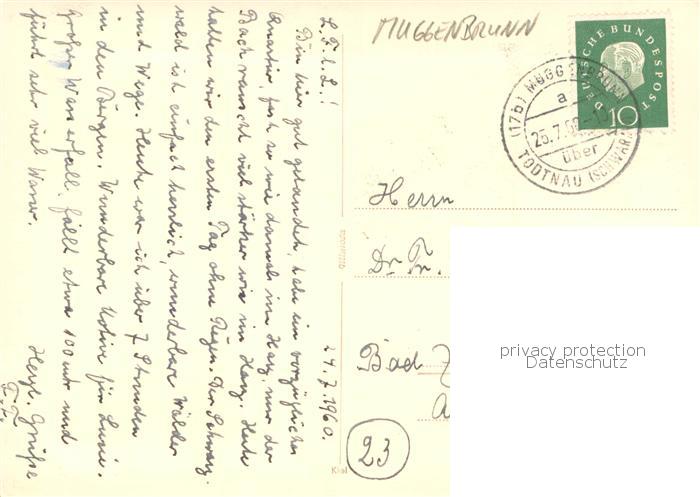 MUGGENBRUNN
DEUTSCHE BUNDESPOST
10
(17b) MUGGENBRUNN
a
25.7.60
über
TODTNAU (SCHWARZW
24.7.1960.
L. F. u. L.!
Bin hier gut gelandet, habe ein vorzügliches
Quartier, fast so wie damals im Harz, nur der
Bach rauscht viel stärker wie im Harz. Heute
hatten wir den ersten Tag ohne Regen. Der Schwarz-
wald ist einfach herrlich, wunderbare Wälder
und Wege. Heute war ich über 7 Stunden
in den Bergen. Wunderbare Motive für
großer Wasserfall, fällt etwa 100 mtr und
führt sehr viel Wasser.
Herzl. Grüße
Herrn
Dr. Fr.
Bad
23
privacy protection
Datenschutz